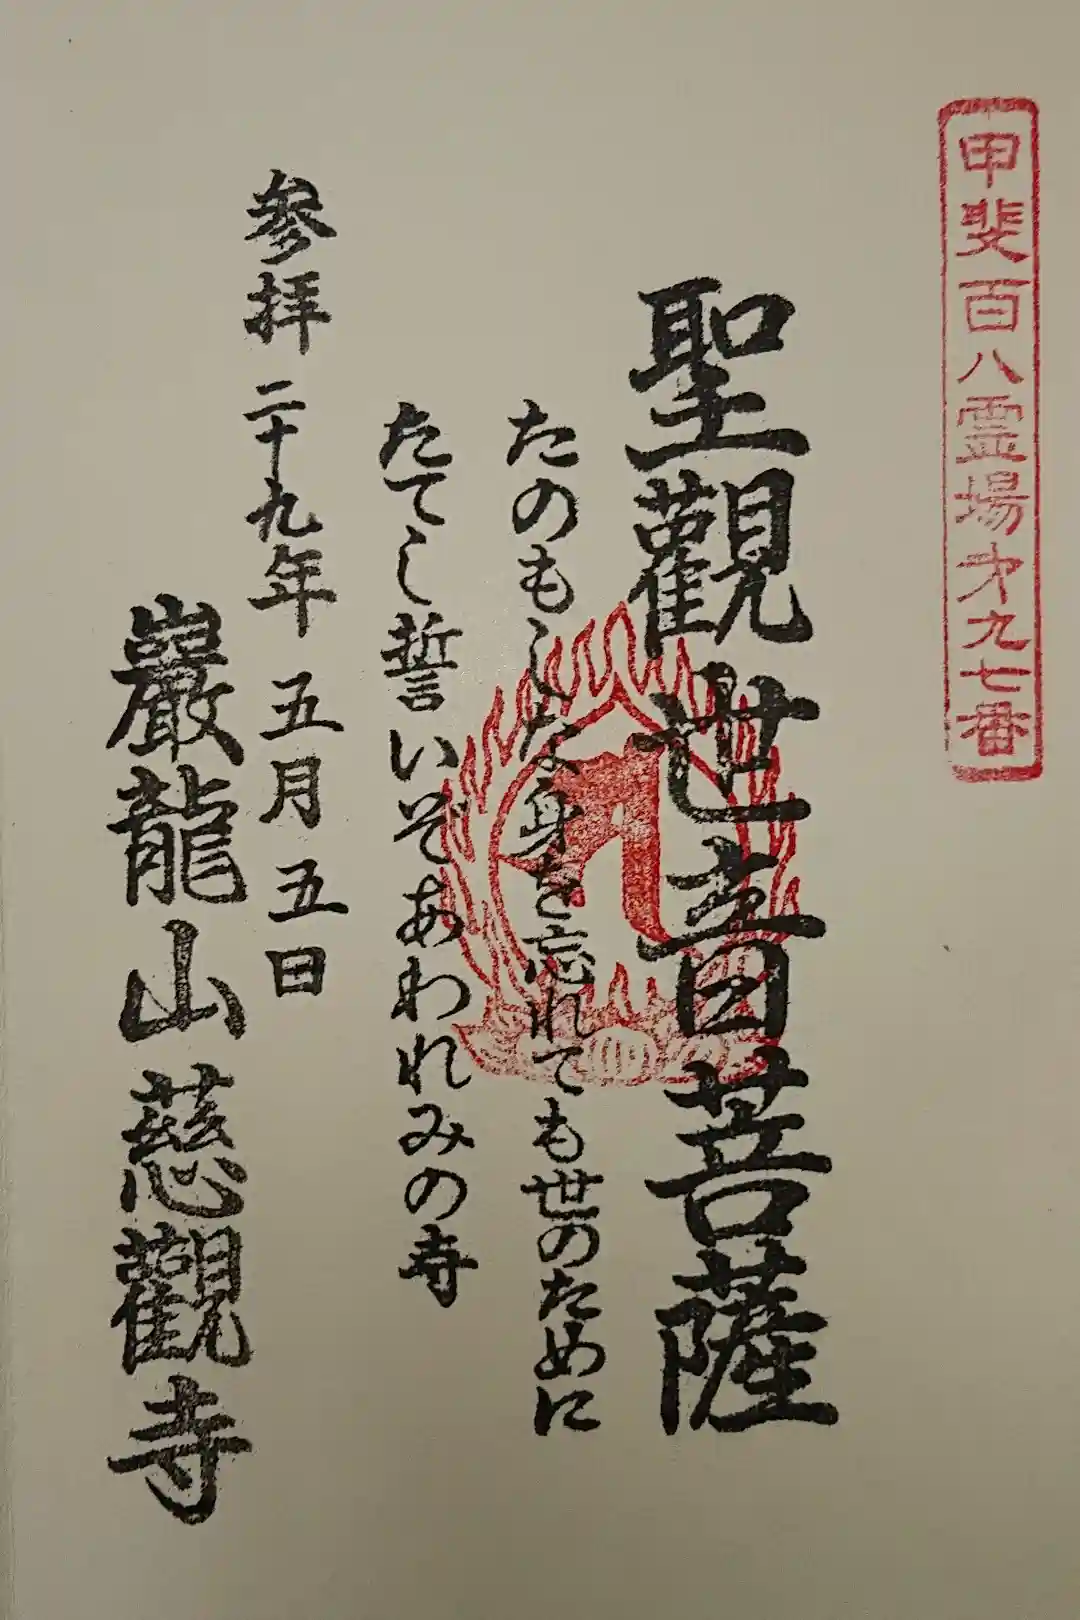 甲斐百八霊場才九七番
聖觀世音菩薩
たのもしな身を忘れても世のために
たてし誓いぞあわれみの寺
参拝 二十九年 五月 五日
巖龍山 慈觀寺